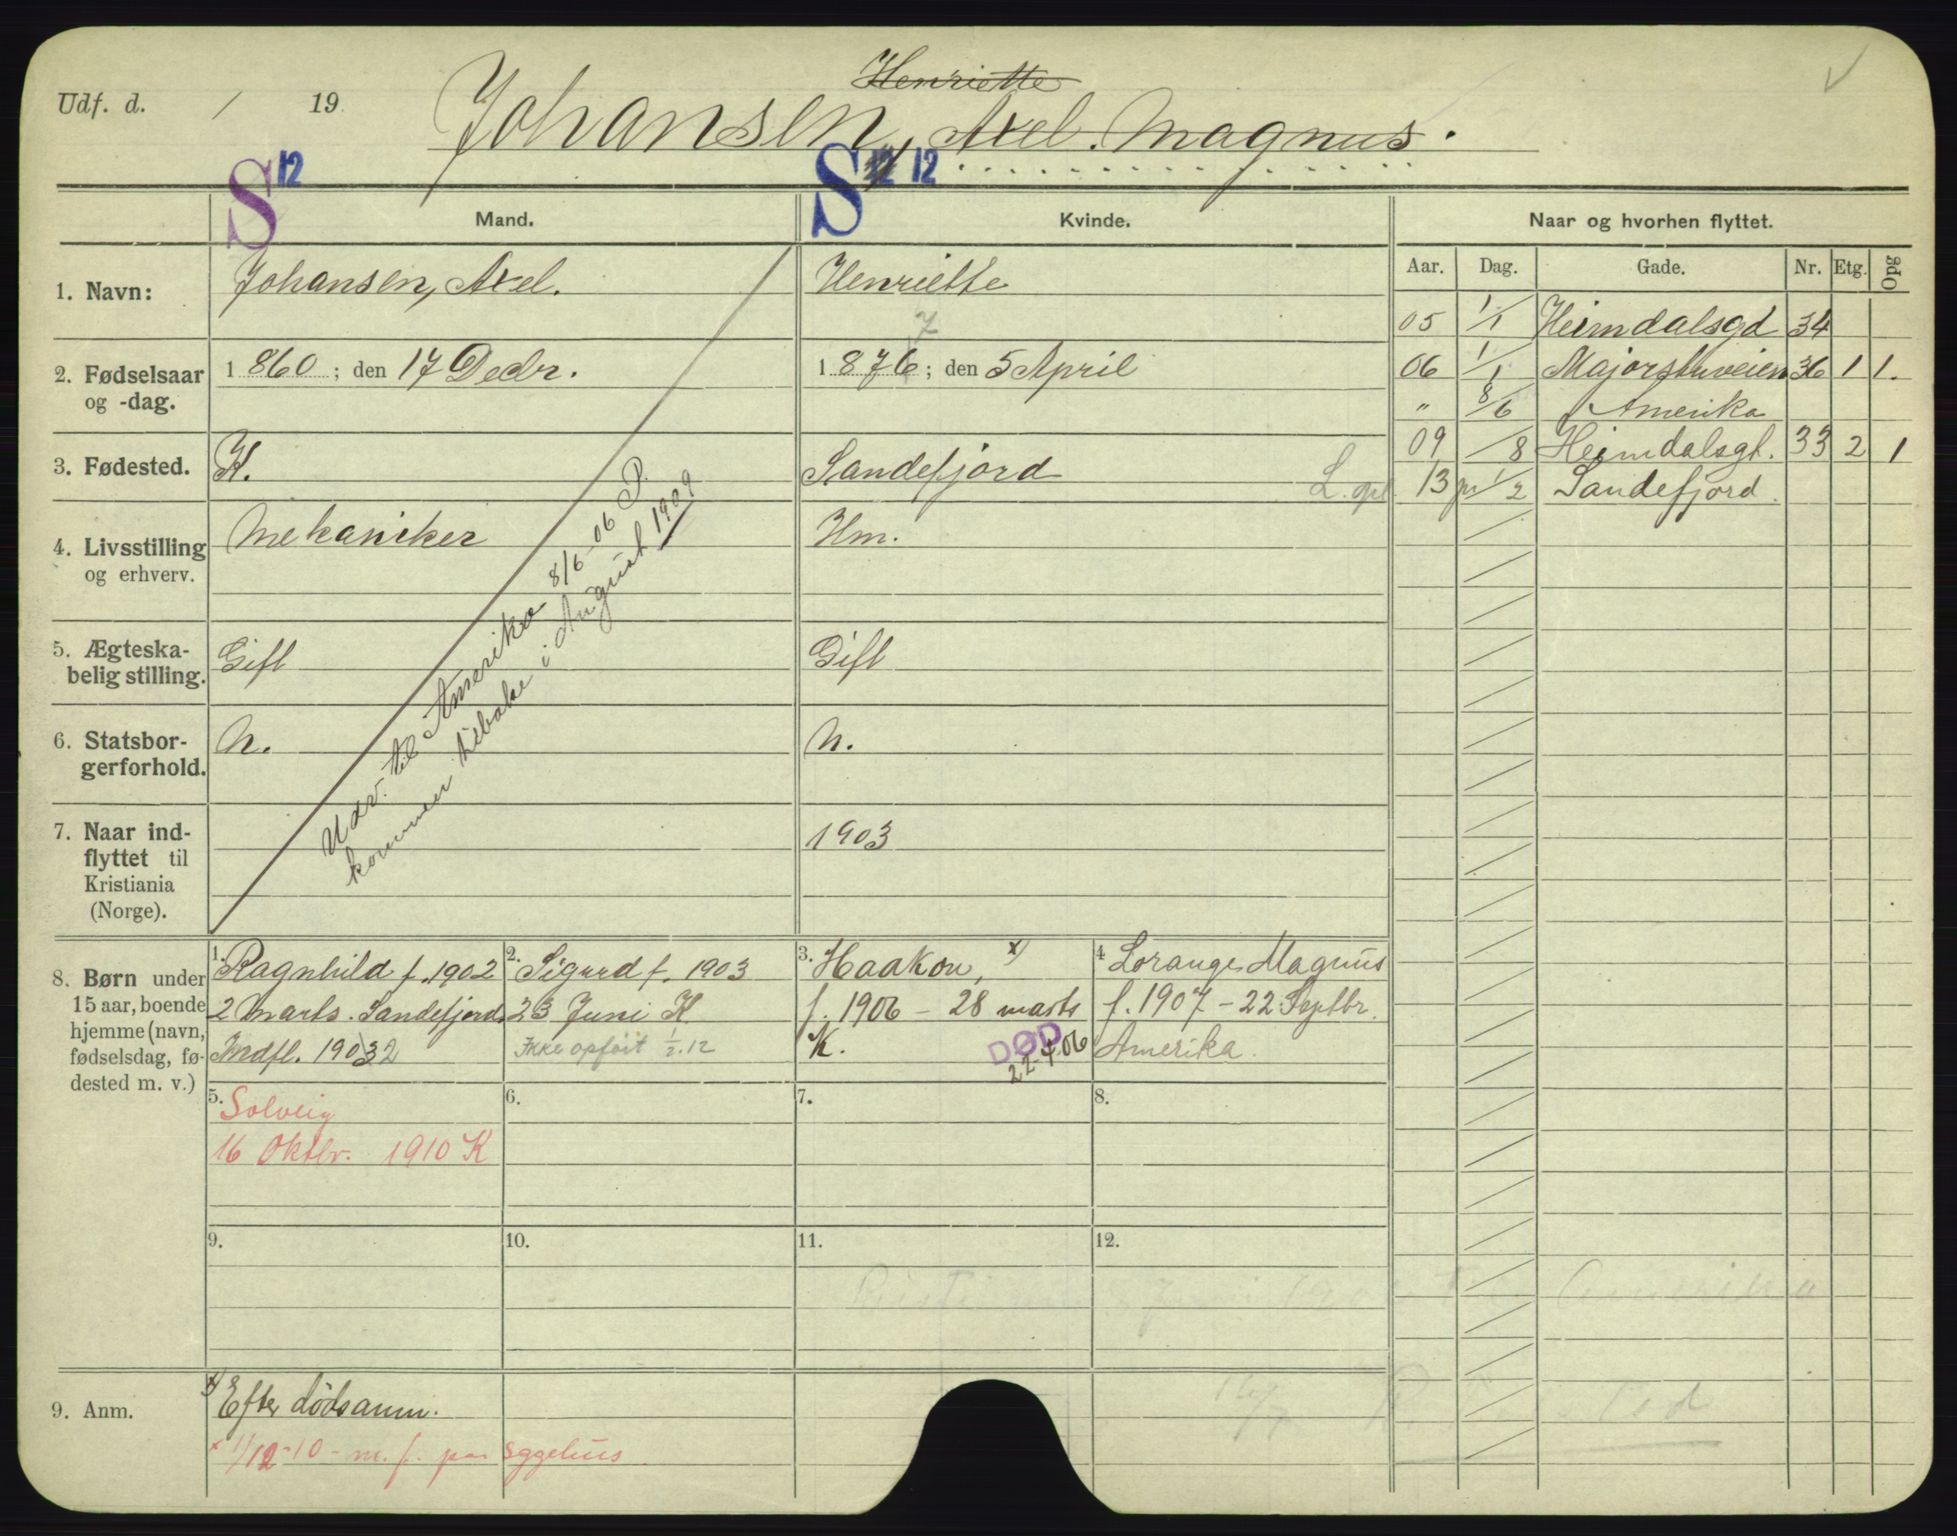 Henriette
Udf. d. / 19 Johansen, Axel. Magnus.
S 12 S 12 12
Mand. Kvinde. Naar og hvorhen flyttet.
Aar. Dag. Gade. Nr. Etg. Opg
1. Navn: Johansen, Axel. Henriette
05 1/1 Heimdalsgd 34
7
2. Fødselsaar og -dag. 1860; den 17 Decbr. 1876; den 5 April
06 1/1 Majorstuveien 36 1 1.
" 8/6 Amerika
3. Fødested. K. Sandefjord
09 /8 Heimdalsgt. 33 2 1
L. opl. 13 pr 1/2 Sandefjord.
4. Livsstilling og erhverv. Mekaniker Hm.
5. Ægteska-
belig stilling. Gift Gift
6. Statsbor-
gerforhold. N. N.
7. Naar ind-
flyttet til
Kristiania
(Norge). 1903
Udv. til Amerika 8/6-06 P.
kommen tilbake i August 1909
8. Børn under
15 aar, boende
hjemme (navn,
fødselsdag, fø-
dested m. v.)
1. Ragnhild f. 1902
2 Marts. Sandefjord
Indfl. 1903 2
2. Sigurd f. 1903
23 Juni K.
Ikke opført 1/2.12
3. Haakon, x)
f. 1906 - 28 marts
K. DØD
22-4 06
4. Lorange Magnus
f. 1907 - 22 Septbr.
Amerika.
5. Solveig
16 Oktbr. 1910 K
6.
7.
8.
9.
10.
11.
12.
Amerika
9. Anm. x) Efter dödsanm.
x 1/12-10 - m. f. paa Eggehus.